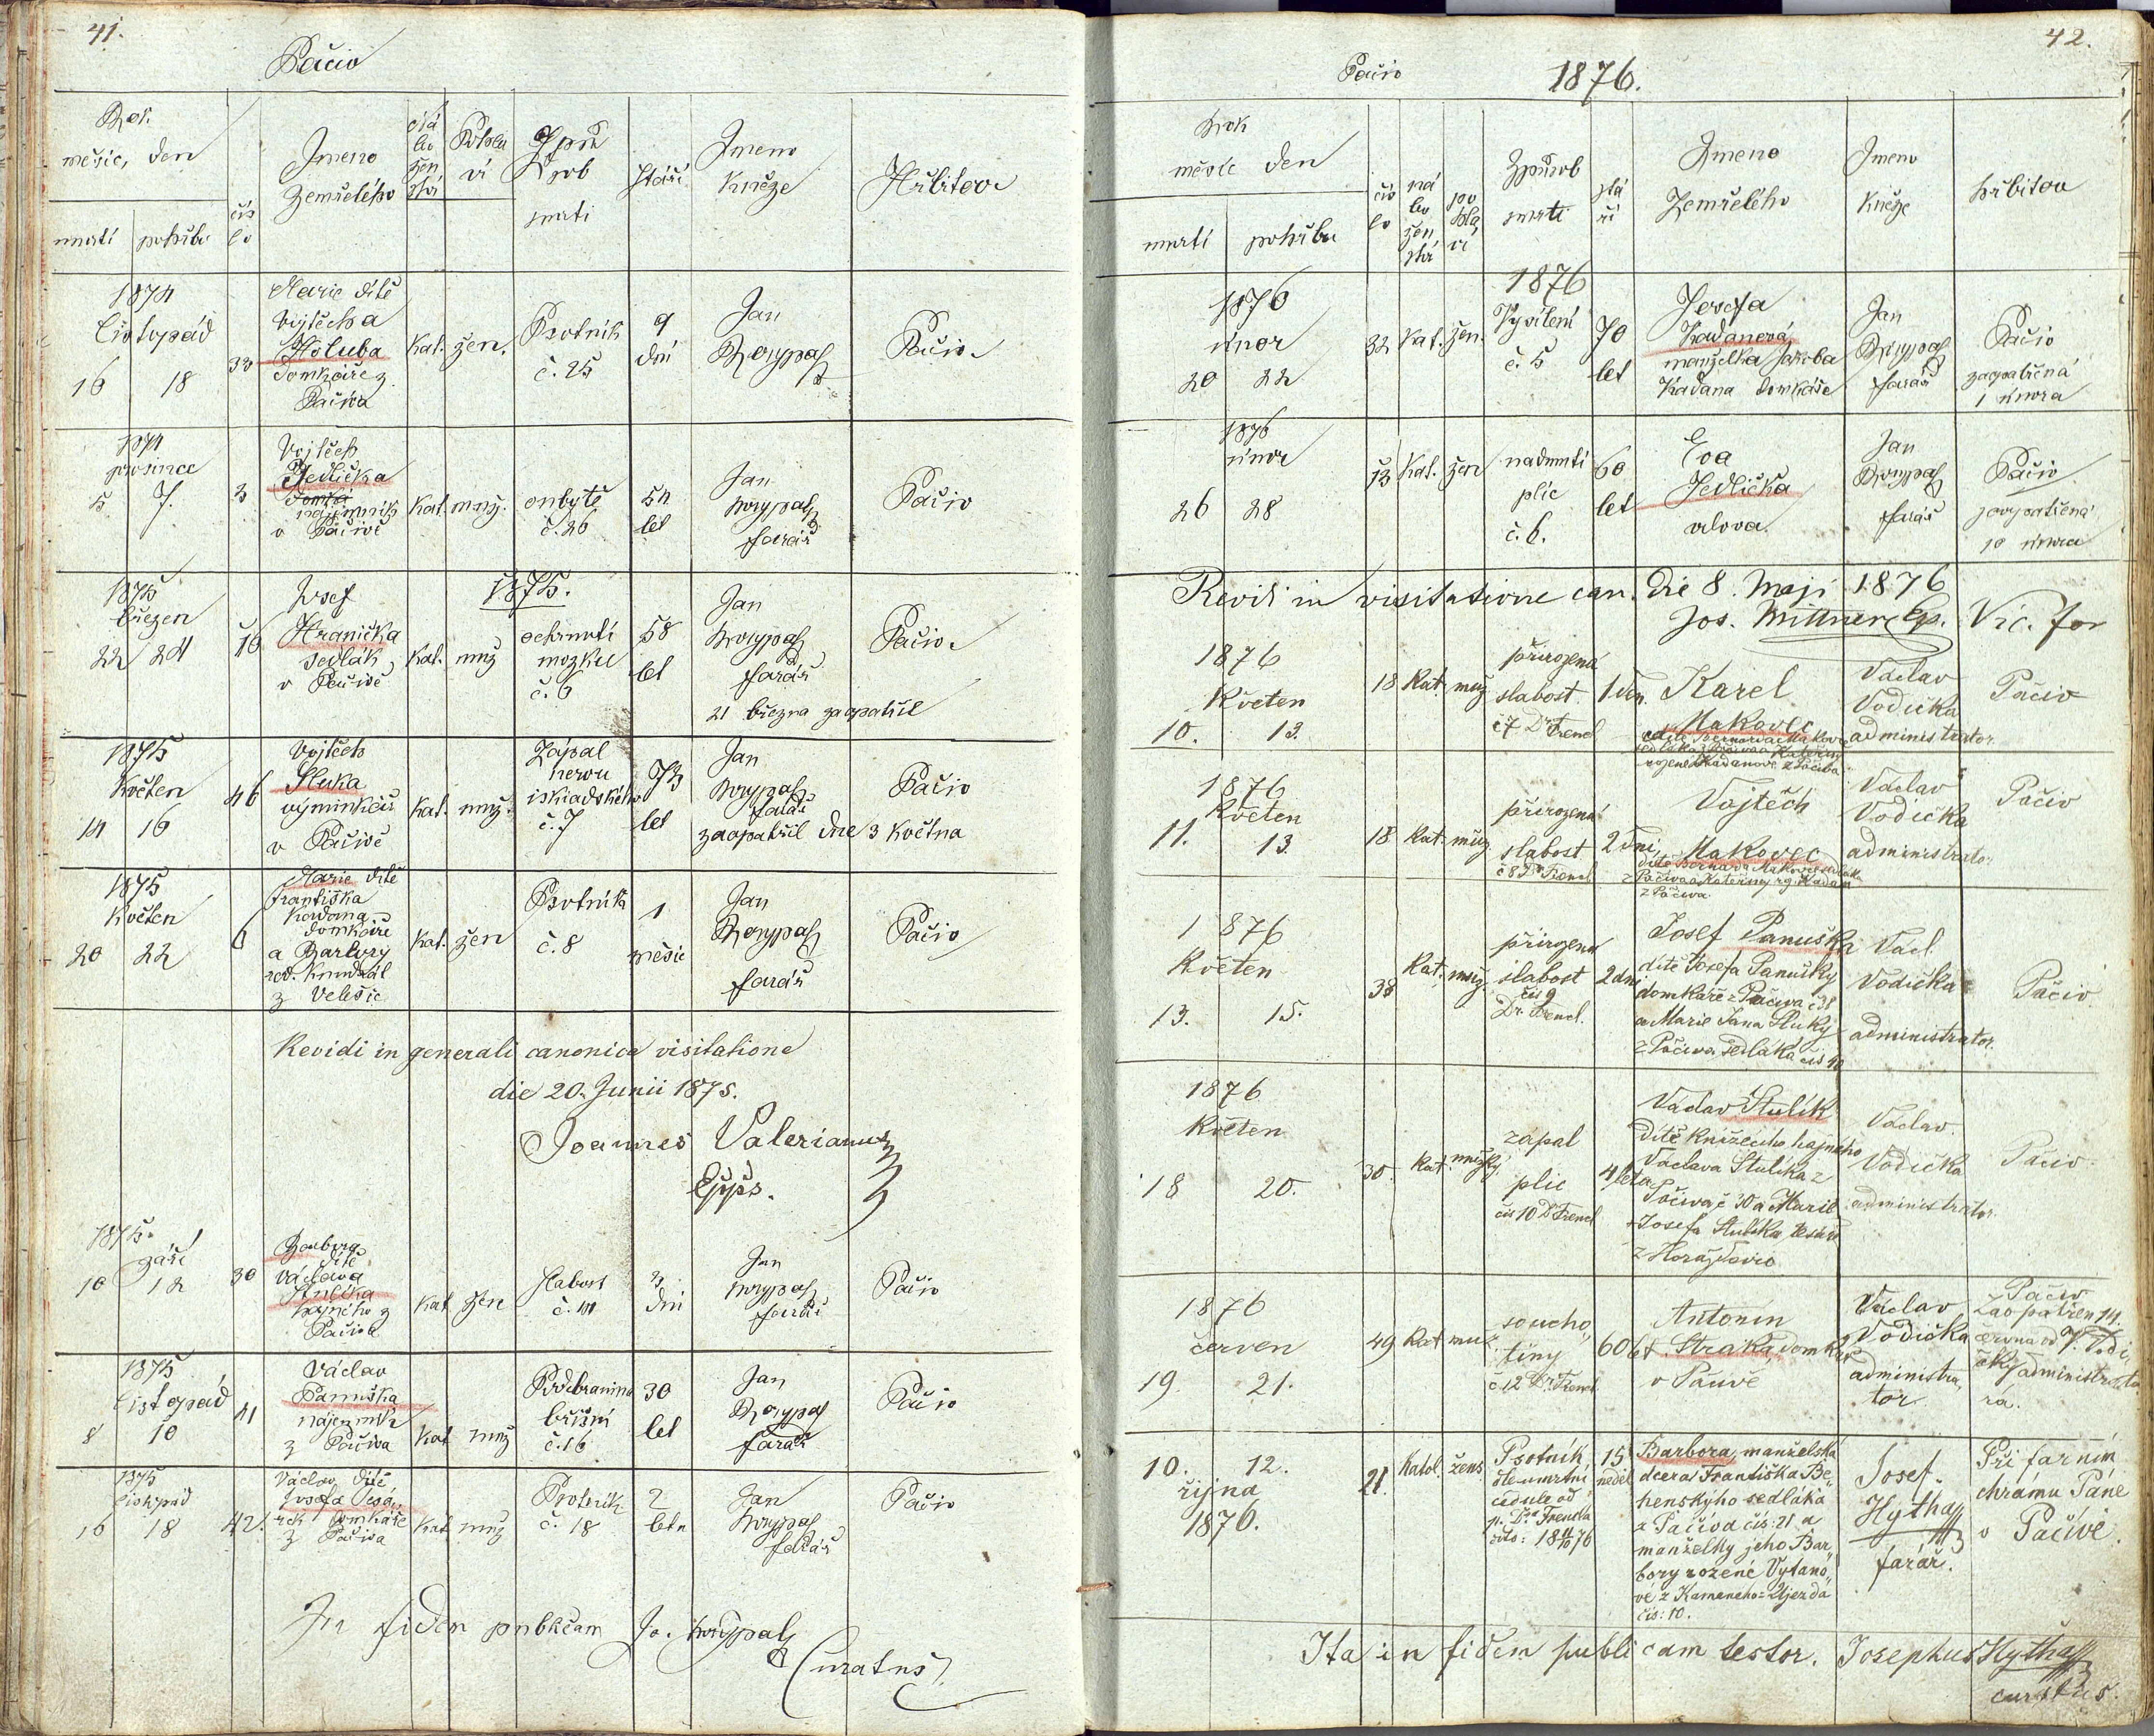 41.
Pačiv
Rok
měsíc, den
úmrtí pohřbu
čís
lo
Jmeno
Zemřelého
Ná
bo
žen
ství
Pohla
ví
Způ
sob
smrti
Stáří
Jmeno
Kněze
Hřbitov
1874
listopad
16 18
Marie dítě
Vojtěcha
Holuba
domkáře z
Pačiva
kat. žen.
Psotník
č. 25
9
dní
Jan
Pačiv
1874
prosince
5 7.
3
Vojtěch
Jedlička
nájemník
v Pačivě
kat. muž.
č. 26
54
let
Jan
farář
Pačiv
1875.
1875
březen
22 24
16
Josef
Hranička
sedlák
v Pačivě
kat. muž
ochrnutí
mozku
č. 6
58
let
Jan
farář
21 března zaopatřil
Pačiv
1875
Květen
14 16
46
Vojtěch
Sluka
výminkář
v Pačivě
kat. muž.
Zápal
nervu
iskiadského
č. 7
73
let
Jan
farář
zaopatřil dne 3 Května
Pačiv
1875
Květen
20 22
6
Marie dítě
Františka
Kadana
domkáře
a Barbory
z Velešic
kat. žen
Psotník
č. 8
1
měsíc
Jan
farář
Pačiv
Revidi in generali canonica visitatione
die 20. Junii 1875.
Joannes Valerianus
Eppus.
1875.
září
10 12
30
Barbora
dítě
Václava
Stulíka
hajného z
Pačiva
kat žen
Slabost
č. 14
3
dni
Jan
farář
Pačiv
1875
listopad
8 10
41
Václav
Panuška
nájemník
z Pačiva
kat muž
břišní
č. 16
30
let
Jan
farář
Pačiv
1875
listopad
16 18
42.
Václav dítě
Josefa
domkáře
z Pačiva
kat muž
Psotník
č. 18
2
leta
Jan
farář
Pačiv
In fidem publicam Jo.
Curatus
42.
Pačiv 1876.
Rok
měsíc den
úmrtí pohřbu
čís
lo
ná
bo
žen
ství
po
hla
ví
Způsob
smrti
stá
ří
Jmeno
Zemřelého
Jmeno
Kněze
hřbitov
1876
1876
únor
20 22
32 kat. žen.
Vysílení
č. 5
70
let
Josefa
Kadanová
manželka Jakuba
Kadana domkáře
Jan
farář
Pačiv
zaopatřená
1 února
1876
únor
26 28
13 kat. žen
nadmutí
plic
č. 6.
60
let
Eva
Jedlička
vdova
Jan
farář
Pačiv
zaopatřená
10 února
Revidi in visitatione can. die 8. Maji 1876
Jos. Mittner Vic. for
1876
Květen
10. 12.
18 Kat. muž
přirozená
slabost
č 7 Dr Frencl
1 den.
Karel
Makovec
dítě Bernarda Makovce
sedláka z Pačiva a Kateřiny
rozené Kadanové z Pačiva
Václav
Vodička
administrator
Pačiv
1876
Květen
11. 13.
18 Kat. muž
přirozená
slabost
č 8 Dr Frencl
2 dni,
Vojtěch
Makovec
dítě Bernarda Makovce sedláka
z Pačiva a Kateřiny roz Kadan
z Pačiva
Václav
Vodička
administrator
Pačiv
1876
Květen
13. 15.
38 Kat. muž
přirozená
slabost
čís 9
Dr. Frencl.
2 dni
Josef Panuška
dítě Josefa Panušky
domkáře z Pačiva č 38
a Marie Jana Sluky
z Pačiva sedláka čís 40
Václ.
Vodička
administrator.
Pačiv
1876
Květen
18 20.
30. Kat. mužský
zápal
plic
čis 10 Dr Frencl
4 leta
Václav Stulík
dítě knížecího hajného
Václava Stulíka z
Pačiva č 30 a Marie
Josefa Stulíka tesaře
z Horažďovic
Václav.
Vodička
administrator.
Pačiv
1876
červen
19. 21.
49 Kat muž
soucho,
tiny
č 12 Dr. Frencl
60 let
Antonín
Straka, domkář
v Pačivě
Václav
Vodička
administra,
tor.
Pačiv
zaopatřen 14.
června od V. Vodi,
čky administráto,
ra.
10. 12.
října
1876.
21.
Katol. žens.
Psotník,
dle úmrtní
cedule od
p. Dra. Frencla
čís: 18 11/10 76
15
neděl
Barbora, manželská
dcera Františka Be,
henského sedláka
z Pačiva čís: 21 a
manželky jeho Bar,
bory rozené Vytano,
vé z Kameného=Újezda
čís: 10.
Josef
Hytha
farář.
Při farním
chrámu Páně
v Pačivě.
Ita in fidem publicam testor. Josephus Hytha
curatus.